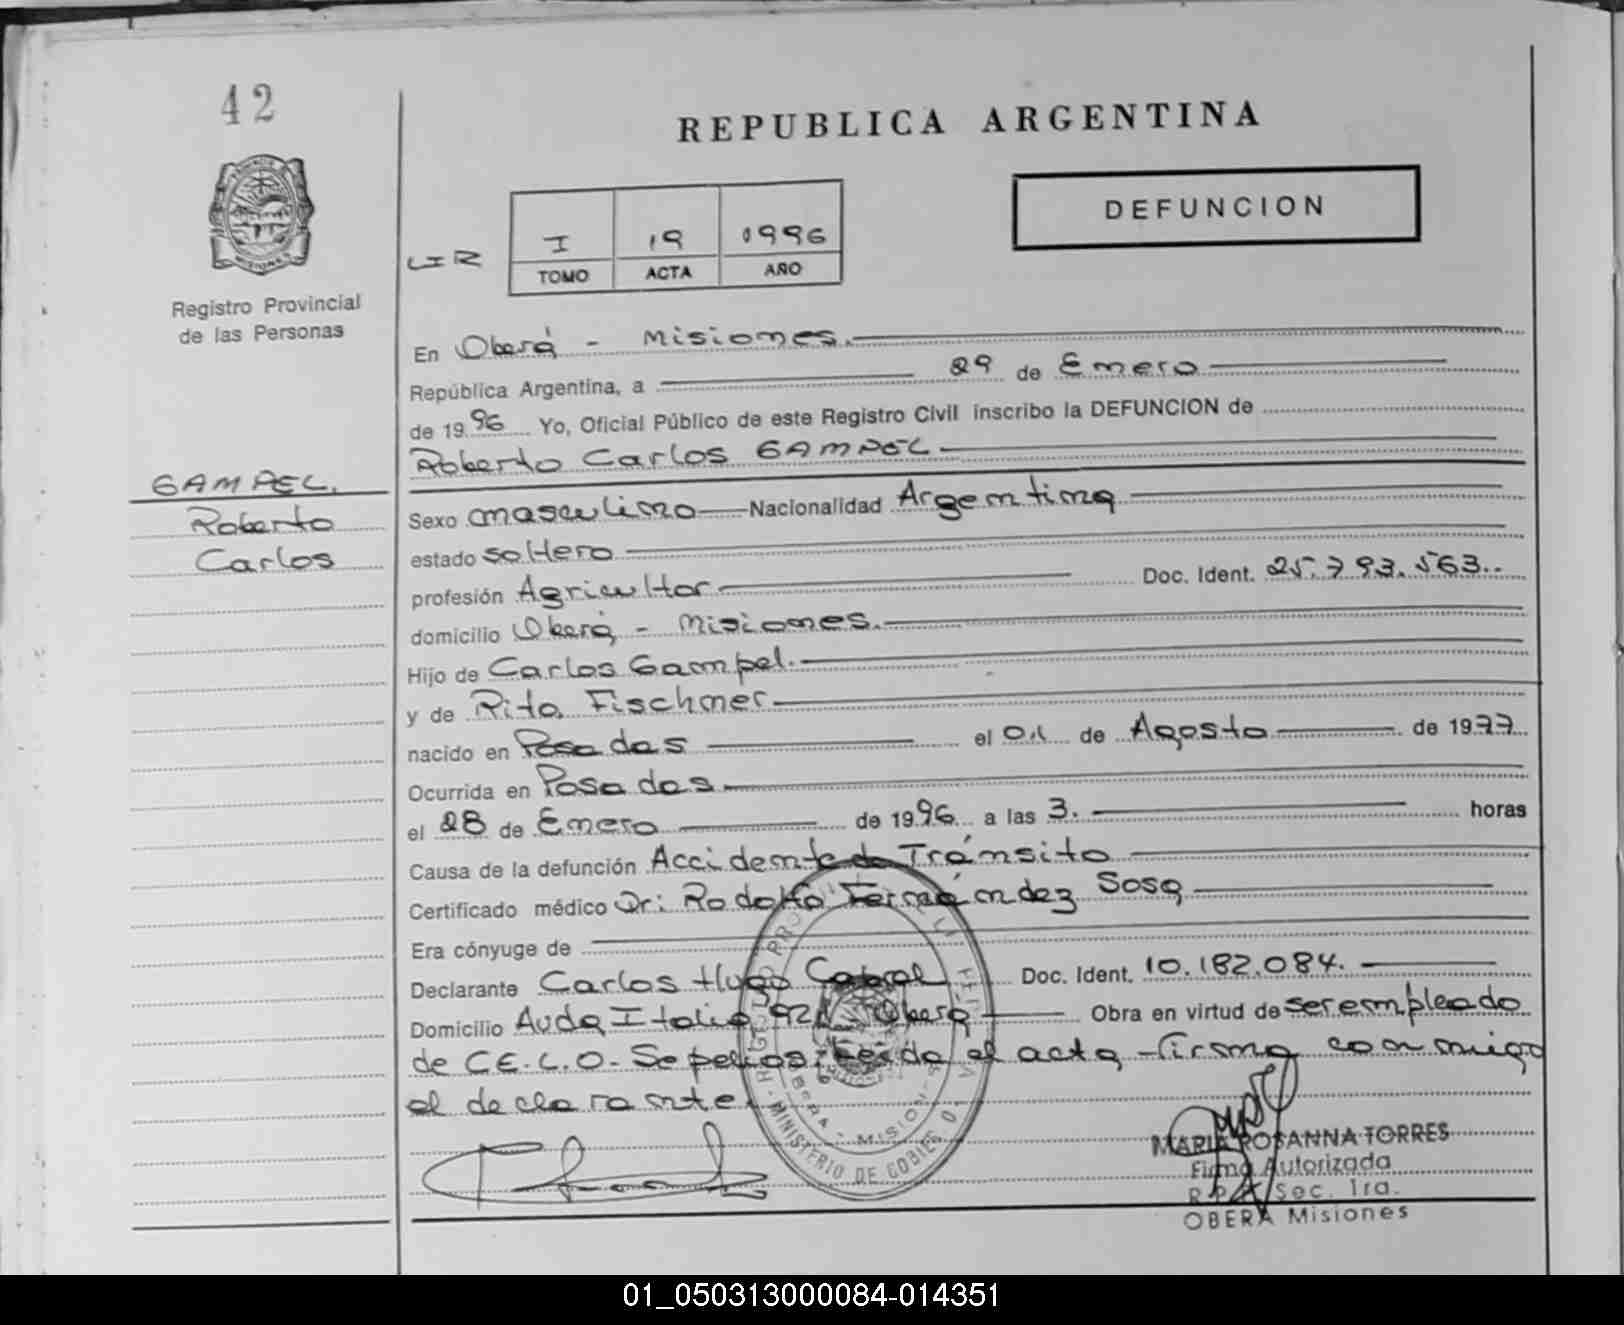 42
REPUBLICA ARGENTINA
DEFUNCION
I 19 1996
TOMO ACTA AÑO
Registro Provincial
de las Personas
En Oberá - Misiones.
República Argentina, a 29 de Enero
de 1996 Yo, Oficial Público de este Registro Civil inscribo la DEFUNCION de
Roberto Carlos GAMPEL
GAMPEL.
Roberto
Carlos
Sexo masculino Nacionalidad Argentina
estado soltero
profesión Agricultor Doc. Ident. 25.793.563.
domicilio Oberá - Misiones.
Hijo de Carlos Gampel.
y de Rita Fischner
nacido en Posadas el 01 de Agosto de 1977
Ocurrida en Posadas
el 28 de Enero de 1996 a las 3. horas
Causa de la defunción Accidente de Tránsito
Certificado médico Dr: Rodolfo Fernández Sosa
Era cónyuge de
Declarante Carlos Hugo Cabral Doc. Ident. 10.182.084.
Domicilio Avda Italia Oberá Obra en virtud de ser empleado
de C.E.L.O- Sepelios: Leida el acta firma conmigo
el declarante.
MINISTERIO DE GOBIERNO
OBERA - MISIONES
MARIA ROSANNA TORRES
Firma Autorizada
R.P. Sec. 1ra.
OBERA Misiones
01_050313000084-014351